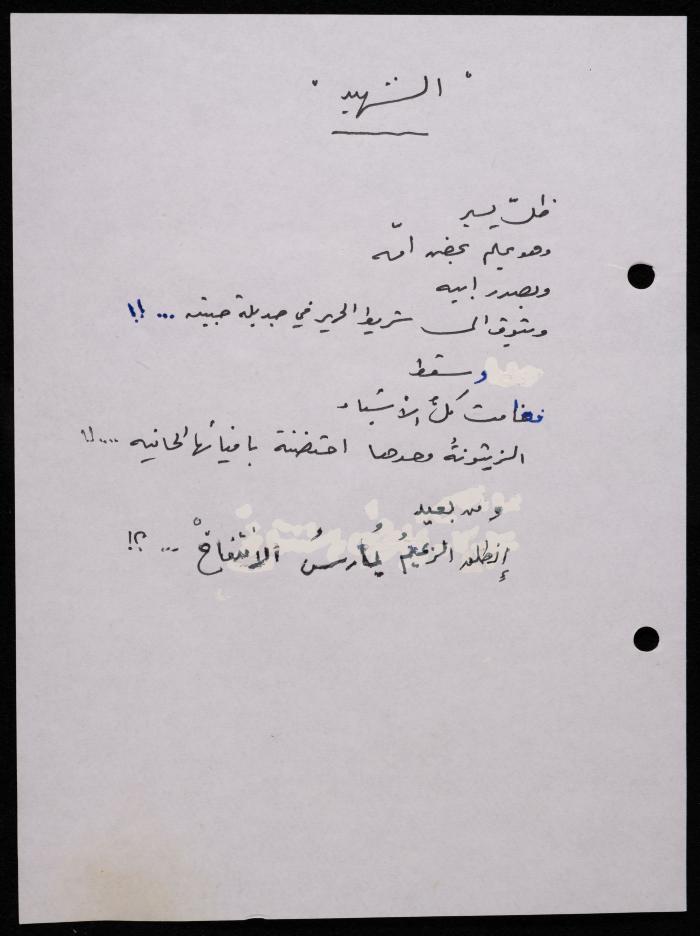 "الشهيد"
ظلّ يسير
وهو يحلم بحضن امّه
وبصدر ابيه
وبتوق الى شريط الحرير في جديلة حبيبته ... !!
وسقط
فغامت كلُّ الأشياء
الزيتونةُ وحدها احتضنتة بافيائها الحانيه ....!!
ومن بعيد
إنطلق الزعيمُ يُمارسُ الانتفاخْ ... ؟!